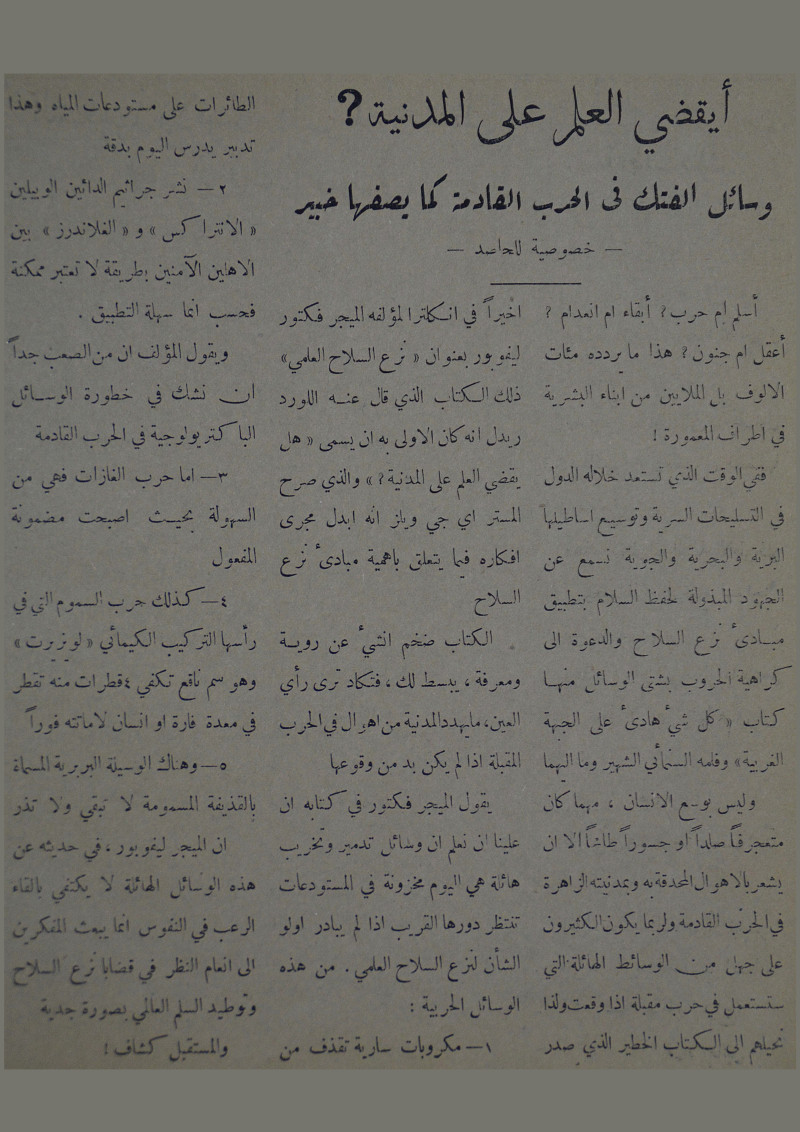 أيقضي العلم على المدنية ؟
وسائل الفتك فى الحرب القادمة كما يصفها خبير
— خصوصية للحاصد —
أسلم ام حرب ؟ أبقاء ام انعدام ؟
أعقل ام جنون ؟ هذا ما يردده مئات
الالوف بل الملايين من ابناء البشرية
في اطراف المعمورة !
ففي الوقت الذي تستعد خلاله الدول
في التسليحات السرية وتوسيع اساطيلها
البرية والبحرية والجوية نسمع عن
الجهود المبذولة لحفظ السلام بتطبيق
مبادىء نزع السلاح والدعوة الى
كراهية الحروب بشتى الوسائل منها
كتاب « كل شيء هادىء على الجبهة
الغربية » وفلمه السنمائي الشهير وما اليهما
وليس بوسع الانسان ، مهما كان
متعجرفاً صلداً او جسوراً طائشاً الا ان
يشعر بالاهوال المحدقة به وبمدنيته الزاهرة
في الحرب القادمة ولربما يكون الكثيرون
على جهل من الوسائط الهائلة التي
ستستعمل في حرب مقبلة اذا وقعت ولذا
نحيلهم الى الكتاب الخطير الذي صدر
اخيراً في انكلترا لمؤلفه الميجر فكتور
ليفوبور بعنوان « نزع السلاح العلمي »
ذلك الكتاب الذي قال عنه اللورد
ريدل انه كان الاولى به ان يسمى « هل
يقضي العلم على المدنية ؟ » والذي صرح
المستر اي جي ويلز انه ابدل مجرى
افكاره فيما يتعلق باهمية مبادىء نزع
السلاح
الكتاب ضخم انشيء عن روية
ومعرفة ، يبسط لك ، فتكاد ترى رأي
العين ، ما يهدد المدنية من اهوال في الحرب
المقبلة اذا لم يكن بد من وقوعها
يقول الميجر فكتور في كتابه ان
علينا ان نعلم ان وسائل تدمير وتخريب
هائلة هي اليوم مخزونة في المستودعات
تنتظر دورها القريب اذا لم يبادر اولو
الشأن لنزع السلاح العلمي . من هذه
الوسائل الحربية :
١ — مكروبات سارية تقذف من
الطائرات على مستودعات المياه وهذا
تدبير يدرس اليوم بدقة
٢ — نشر جراثيم الدائين الوبيلين
« الانتراكس » و « الغلاندرز » بين
الاهلين الآمنين بطريقة لا تعتبر ممكنة
فحسب انما سهلة التطبيق .
ويقول المؤلف ان من الصعب جداً
ان نشك في خطورة الوسائل
الباكتريولوجية في الحرب القادمة
٣ — اما حرب الغازات فهي من
السهولة بحيث اصبحت مضمونة
المفعول
٤ — كذلك حرب السموم التي في
رأسها التركيب الكيمائي « لويزيت »
وهو سم ناقع تكفي ٤ قطرات منه تقطر
في معدة فارة او انسان لاماتته فوراً
٥ — وهناك الوسيلة البربرية المسماة
بالقذيفة المسمومة لا تبقي ولا تذر
ان الميجر ليفوبور ، في حديثه عن
هذه الوسائل الهائلة لا يكتفي بالقاء
الرعب في النفوس انما يبعث المفكرين
الى انعام النظر في قضايا نزع السلاح
وتوطيد السلم العالمي بصورة جدية
والمستقبل كشاف !